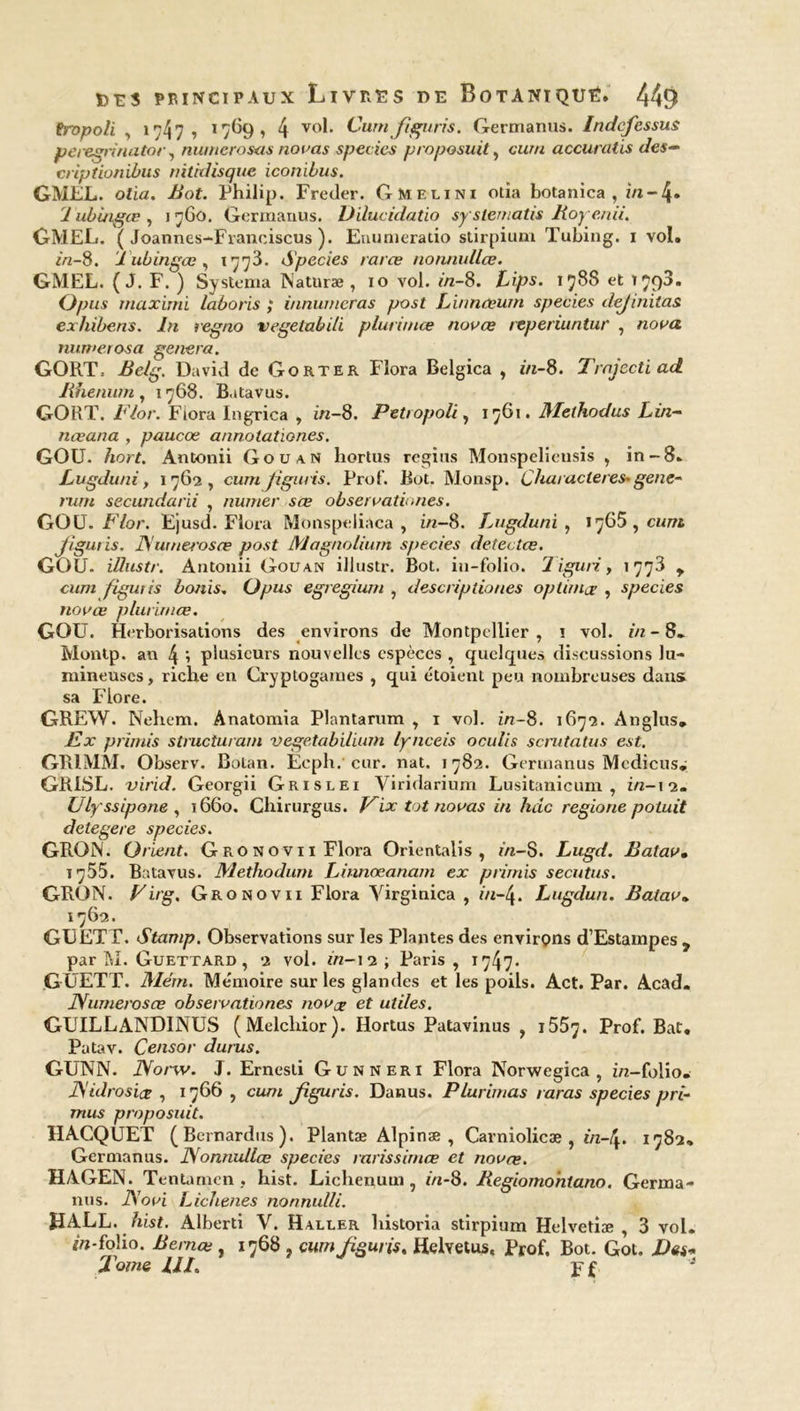 DES PRINCIPAUX LIVRES DE BOTANIQUE. 449
tropoli, 1747, 1769, 4 vol. Cum figuris. Germanus. Indefessus
peregrinator, numerosas novas species proposuit, cum accuratis des-
criptionibus nitidisque iconibus.
GMEL. otia. Bot. Philip. Freder. GMELINI otia botanica, in-4.
Tubingæ, 1760. Germanus. Dilucidatio systematis Royenii.
GMEL. (Joannes-Franciscus). Enumeratio stirpium Tubing. 1 vol.
in-8. Tubingæ, 1773. Species raræ nonnullæ.
GMEL. (J. F.) Systema Naturæ, 10 vol. in-8. Lips. 1788 et 1793.
Opus maximi laboris; innumeras post Linnæum species definitas
exhibens. In regno vegetabili plurimæ novæ reperiuntur, nova
numerosa genera.
GORT. Belg. David de GORTER Flora Belgica, in-8. Trajecti ad
Rhenum, 1768. Batavus.
GORT. Flor. Flora Ingrica, in-8. Petropoli, 1761. Methodus Lin-
næana, paucæ annotationes.
GOU. hort. Antonii GOUAN hortus regius Monspeliensis, in-8.
Lugduni, 1762, cum figuris. Prof. Bot. Monsp. Characteres gene-
rum secundarii, numerosæ observationes.
GOU. Flor. Ejusd. Flora Monspeliaca, in-8. Lugduni, 1765, cum
figuris. Numerosæ post Magnolium species detectæ.
GOU. illustr. Antonii GOUAN illustr. Bot. in-folio. Tiguri, 1773,
cum figuris bonis. Opus egregium, descriptiones optimæ, species
novæ plurimæ.
GOU. Herborisations des environs de Montpellier, 1 vol. in-8.
Montp. an 4; plusieurs nouvelles espèces, quelques discussions lu-
mineuses, riche en Cryptogames, qui étoient peu nombreuses dans
sa Flore.
GREW. Nehem. Anatomia Plantarum, 1 vol. in-8. 1672. Anglus.
Ex primis structuram vegetabilium lynceis oculis scrutatus est.
GRIMM. Observ. Botan. Ecph. cur. nat. 1782. Germanus Medicus.
GRISL. virid. Georgii GRISLEI Viridarium Lusitanicum, in-12.
Ulyssipone, 1660. Chirurgus. Vix tot novas in hâc regione potuit
detegere species.
GRON. Orient. GRONOVII Flora Orientalis, in-8. Lugd. Batav.
1755. Batavus. Methodum Linnœanam ex primis secutus.
GRON. Virg. GRONOVII Flora Virginica, in-4. Lugdun. Batav.
1762.
GUETT. Stamp. Observations sur les Plantes des environs d'Estampes,
par M. GUETTARD, 2 vol. in-12; Paris, 1747.
GUETT. Mém. Mémoire sur les glandes et les poils. Act. Par. Acad.
Numerosæ observationes novæ et utiles.
GUILLANDINUS (Melchior). Hortus Patavinus, 1557. Prof. Bat.
Patav. Censor durus.
GUNN. Norw. J. Ernesti GUNNERI Flora Norwegica, in-folio.
Nidrosiæ, 1766, cum figuris. Danus. Plurimas raras species pri-
mus proposuit.
HACQUET (Bernardus). Plantæ Alpinæ, Carniolicæ, in-4. 1782.
Germanus. Nonnullæ species rarissimæ et novæ.
HAGEN. Tentamen, hist. Lichenum, in-8. Regiomontano. Germa-
nus. Novi Lichenes nonnulli.
HALL. hist. Alberti V. HALLER historia stirpium Helvetiæ, 3 vol.
in-folio. Bernæ, 1768, cum figuris. Helvetus. Prof. Bot. Got. Des-
Tome III. Ff